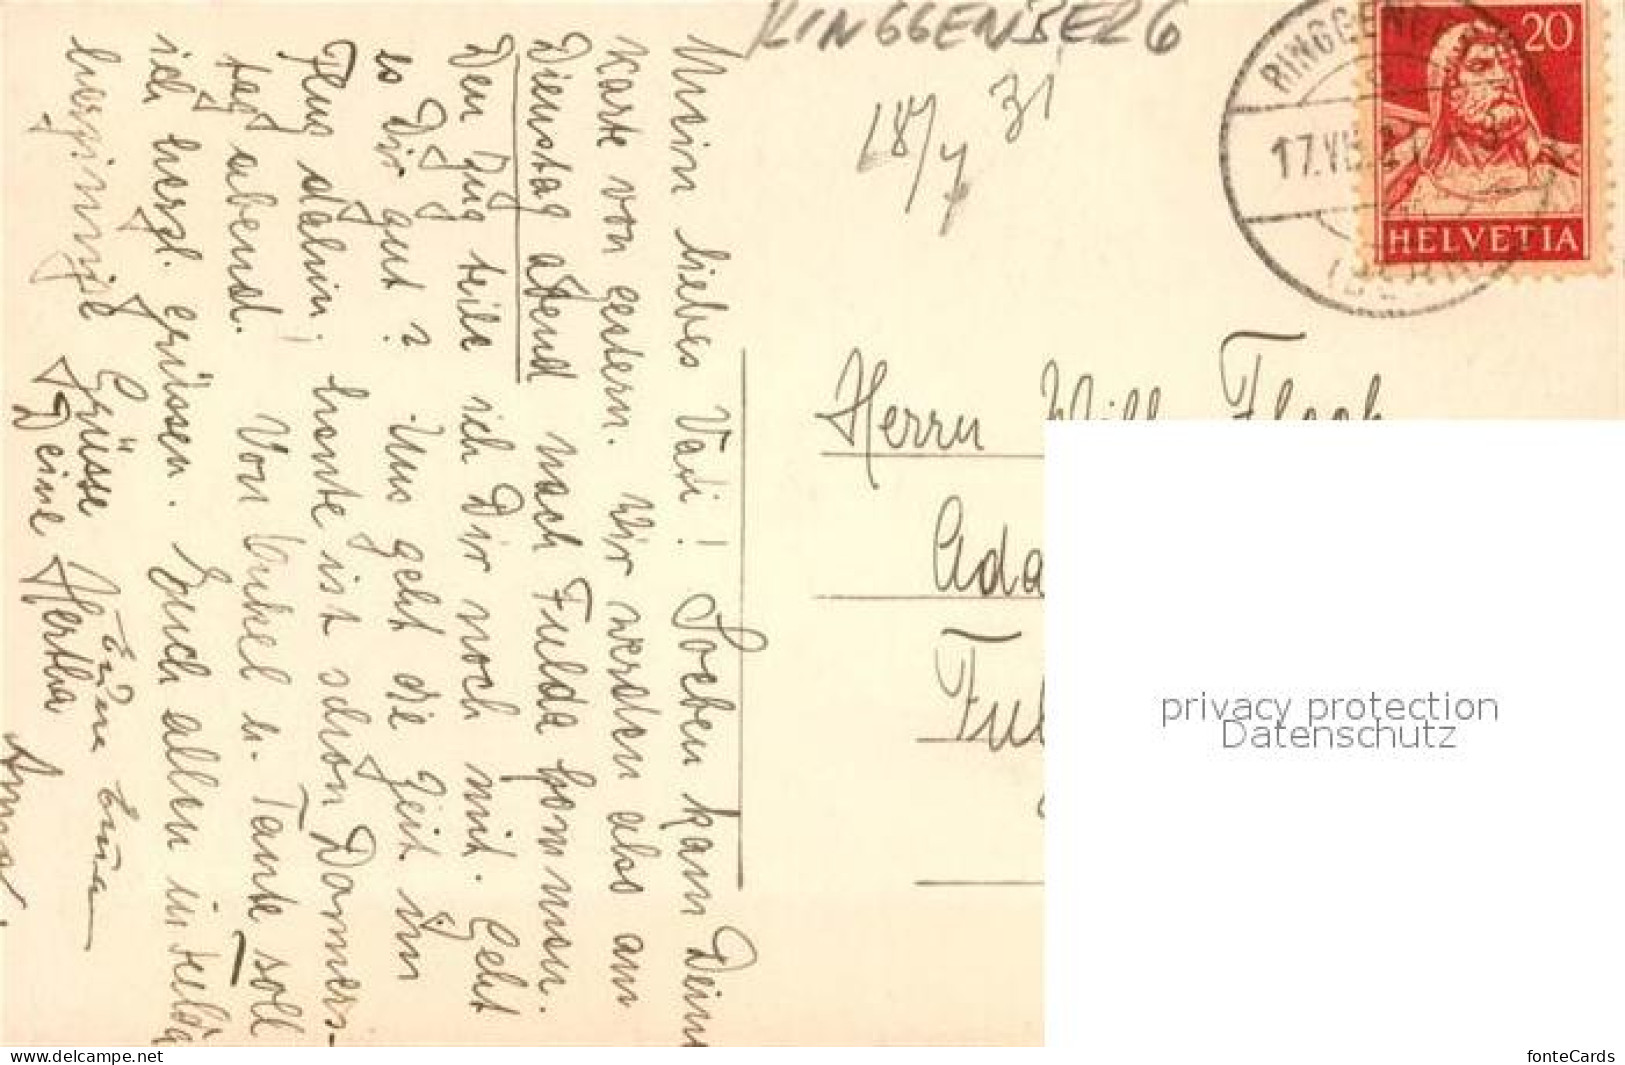 RINGGENBERG
18/7 31
RINGGEN
17.VII.31
20
HELVETIA
Mein liebes Vati! Soeben kam Deine
Karte von gestern. Wir werden also am
Dienstag abend nach Fulda kommen.
Den Zug teile ich Dir noch mit. Geht
es Dir gut? Uns geht die Zeit im
Flug dahin, heute ist schon Donners-
tag abend. Von Onkel u. Tante soll
ich herzl. grüssen. Euch allen in Fulda
herzinnige Grüsse
Deine Hertha
Herrn Willy Flach
Ada
Ful
privacy protection
Datenschutz
https://www.delcampe.net
fonteCards